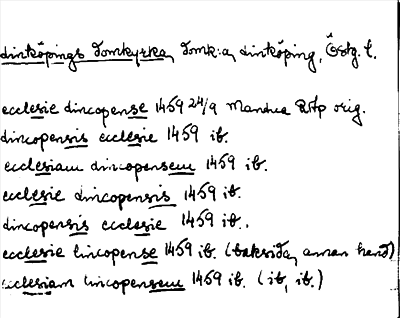 Linköpings domkyrka, domk:a, Linköping, Östg. l.
ecclesie lincopense 1459 24/9 Mandua RAp orig.
lincopensis ecclesie 1459 ib.
ecclesiam lincopensem 1459 ib.
ecclesie lincopensis 1459 ib.
lincopensis ecclesie 1459 ib.
ecclesie lincopense 1459 ib. (baksida, annan hand)
ecclesiam lincopensem 1459 ib. (ib, ib.)